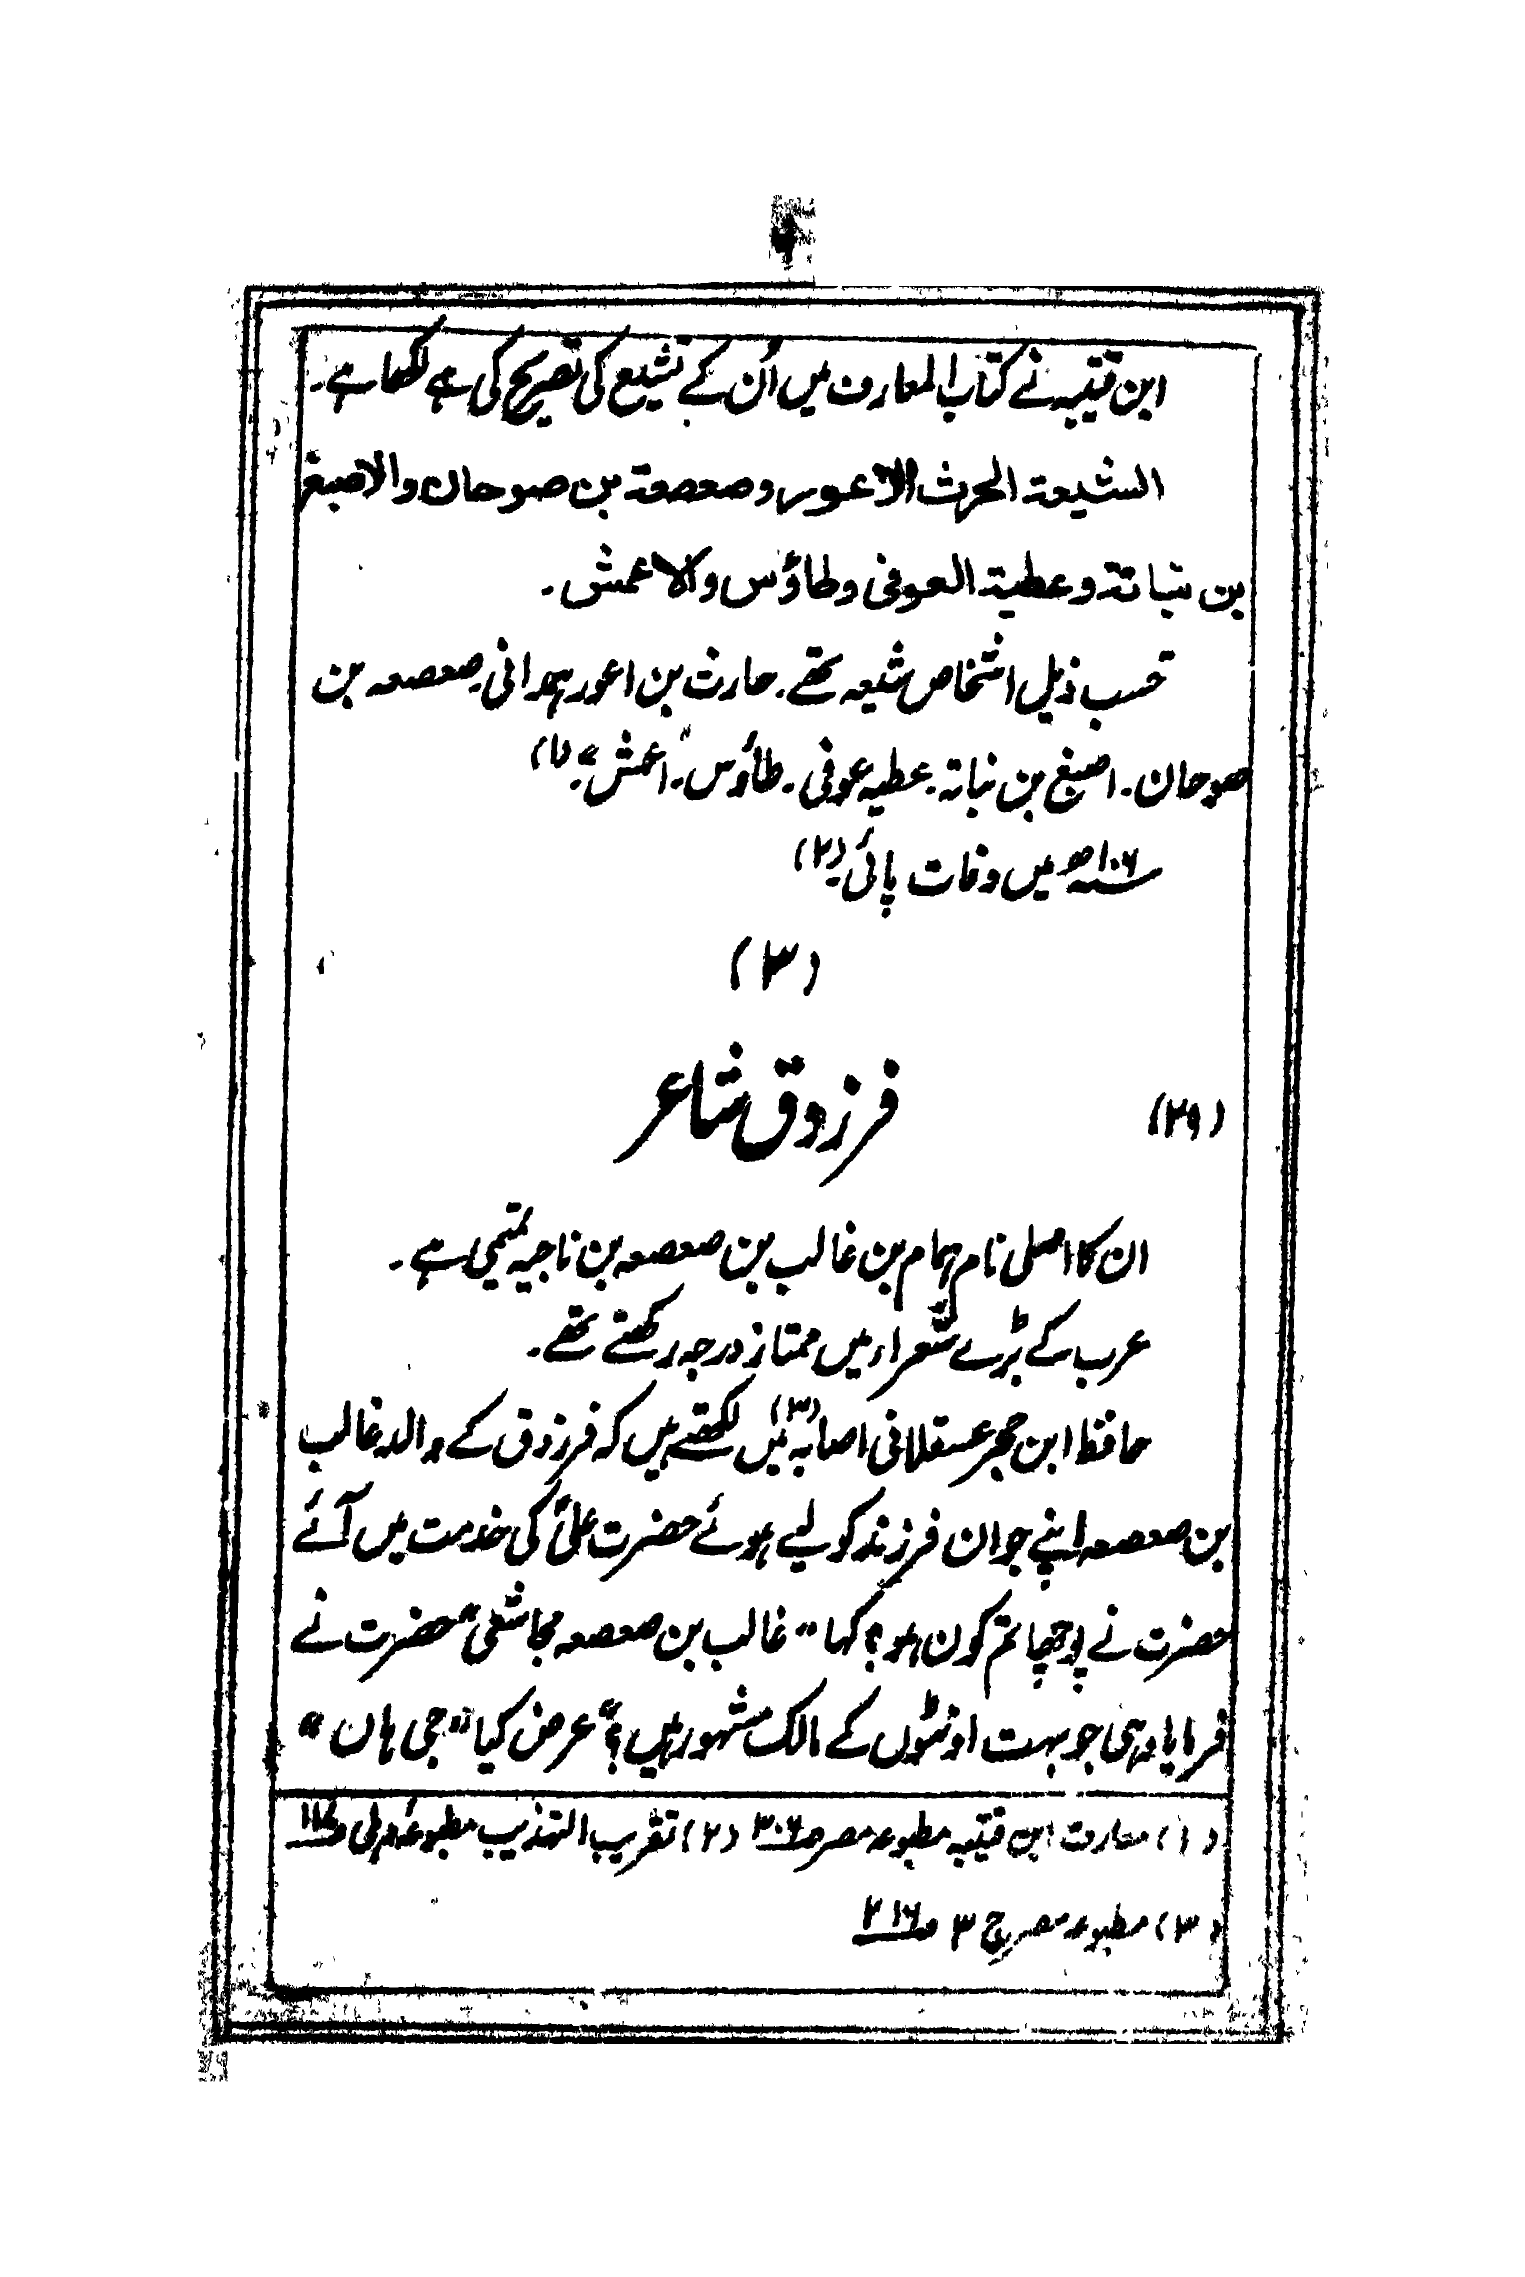 ابن قتیبہ نے کتاب المعارف میں اُن کے تشیع کی تصریح کی ہے لکھا ہے۔
الشیعۃ الحرث الاعور وصعصعۃ بن صوحان والاصبغ
بن نباتۃ وعطیۃ العوفی وطاؤس والاعمش۔
حسب ذیل اشخاص شیعہ تھے۔ حارث بن اعور ہمدانی۔ صعصعہ بن
صوحان۔ اصبغ بن نباتہ۔ عطیہ عوفی۔ طاؤس۔ اعمش۔ (۱)
۱۰۶ھ میں وفات پائی۔ (۲)
(۳)
(۲۹) فرزوق شاعر
ان کا اصلی نام ہمام بن غالب بن صعصعہ بن ناجیہ تمیمی ہے۔
عرب کے بڑے شعراء میں ممتاز درجہ رکھتے تھے۔
حافظ ابن حجر عسقلانی اصابہ (۳) میں لکھتے ہیں کہ فرزدق کے والد غالب
بن صعصعہ اپنے جوان فرزند کو لیے ہوئے حضرت علیؑ کی خدمت میں آئے
حضرت نے پوچھا تم کون ہو؟ کہا "غالب بن صعصعہ مجاشعی" حضرت نے
فرمایا وہی جو بہت اونٹوں کے مالک مشہور ہیں؟" عرض کیا "جی ہاں"
(۱) معارف ابن قتیبہ مطبوعہ مصر ص۳۰۶ (۲) تقریب التہذیب مطبوعہ دہلی
(۳) مطبوعہ مصر ج ۳ ص۲۱۶